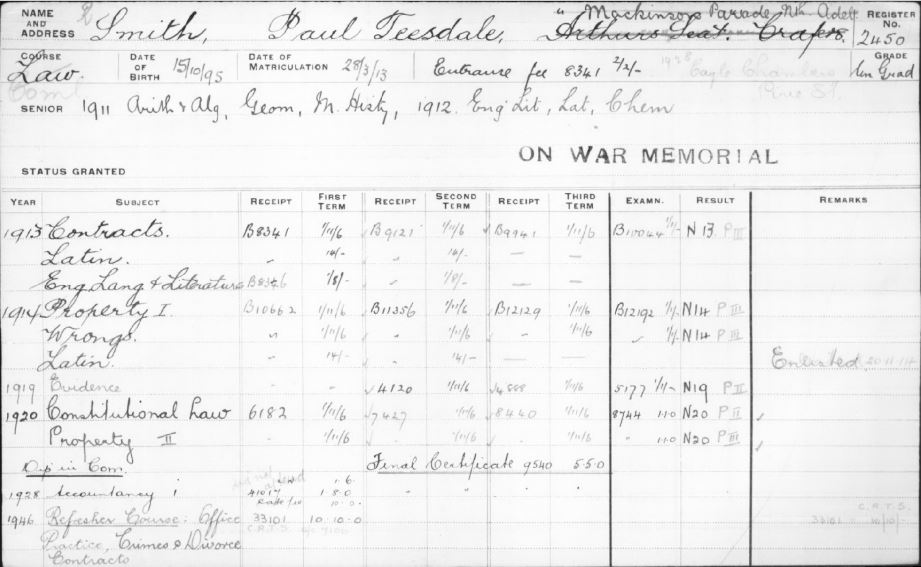 NAME AND ADDRESS Smith, Paul Teesdale, " Mackinson Parade, Nth Adel REGISTER No. 2450
Arthurs Seat. Crafers,
COURSE Law. DATE OF BIRTH 15/10/95 DATE OF MATRICULATION 28/3/13 Entrance fee 8341 2/2/- 1928 Eagle Chambers Pirie St. GRADE Un Grad
Coml
SENIOR 1911 Arith & Alg, Geom, M. Histy, 1912. Eng Lit, Lat, Chem
ON WAR MEMORIAL
STATUS GRANTED
YEAR SUBJECT RECEIPT FIRST TERM RECEIPT SECOND TERM RECEIPT THIRD TERM EXAMN. RESULT REMARKS
1913 Contracts. B8341 1/11/6 B9121 1/11/6 B9941 1/11/6 B10044 1/1/- N 13. P III
Latin. " 14/- " 14/- — —
Eng Lang & Literature B8346 1/8/- " 1/8/- — —
1914 Property I. B10662 1/11/6 B11356 1/11/6 B12129 1/11/6 B12192 1/1/- N14 P III
Wrongs. " 1/11/6 " 1/11/6 " 1/11/6 " 1/1/- N14 P III
Latin. " 14/- " 14/- — — Enlisted 20 11 14
1919 Evidence - - 4120 1/11/6 4888 1/11/6 5177 1/1/- N19 P II
1920 Constitutional Law 6182 1/11/6 7427 1/11/6 8440 1/11/6 8744 1.1.0 N20 P II
Property II " 1/11/6 " 1/11/6 " 1/11/6 " 1.1.0 N20 P III
Dip in Com. Final Certificate 9540 5.5.0
1928 Accountancy i 41017 1.8.0 " " " "
10.0
1946 Refresher Course: Office 33101 10.10.0 C.R.T.S.
Practice, Crimes & Divorce C.R.T.S. 33101 10/10/-
Contracts